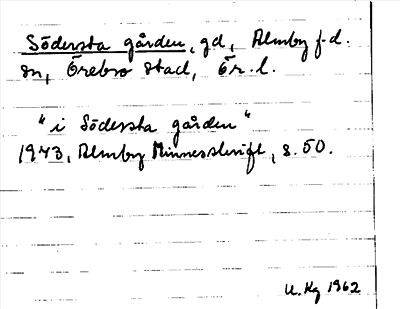 Södersta gården, gd, Almby f.d.
sn, Örebro stad, Ör. l.
"i Södersta gården"
1943, Almby Minnesskrift, s. 50.
U. Kg 1962